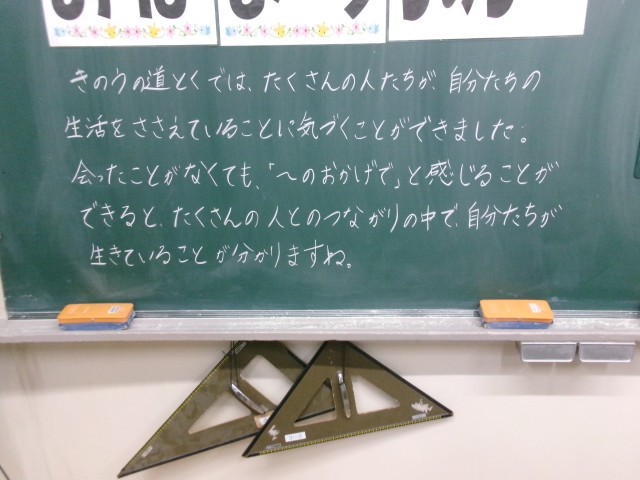 きのうの道とくでは、たくさんの人たちが、自分たちの
生活をささえていることに気づくことができました。
会ったことがなくても、「〜のおかげで」と感じることが
できると、たくさんの人とのつながりの中で、自分たちが
生きていることが分かりますね。